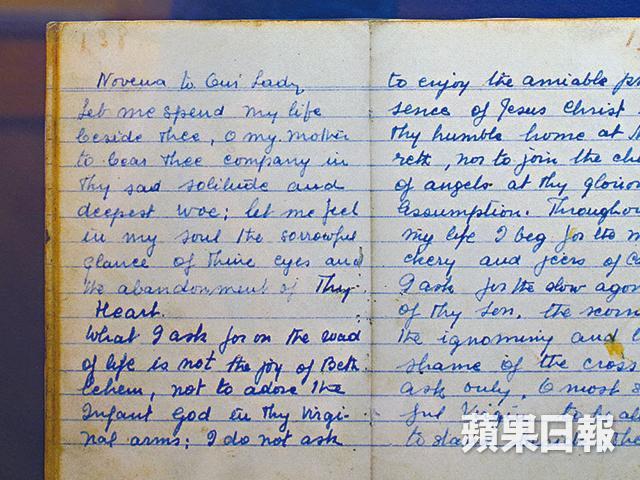 Novena to Our Lady
Let me spend my life
beside Thee, O my Mother
to bear Thee company in
Thy sad solitude and
deepest woe; let me feel
in my soul the sorrowful
glance of Thine eyes and
the abandonment of Thy
Heart.
What I ask for on the road
of life is not the joy of Beth
lehem, not to adore the
Infant God in Thy Virgi-
nal arms; I do not ask
to enjoy the amiable pr
sence of Jesus Christ
Thy humble home at
reth, nor to join the ch
of angels at Thy glorio
Assumption. Througho
my life I beg for the m
ckery and jeers of Ca
I ask for the slow agon
of Thy son, the scorn
the ignominy and
shame of the cross
ask only, O most
ful Virgin, to
to sta
蘋果日報